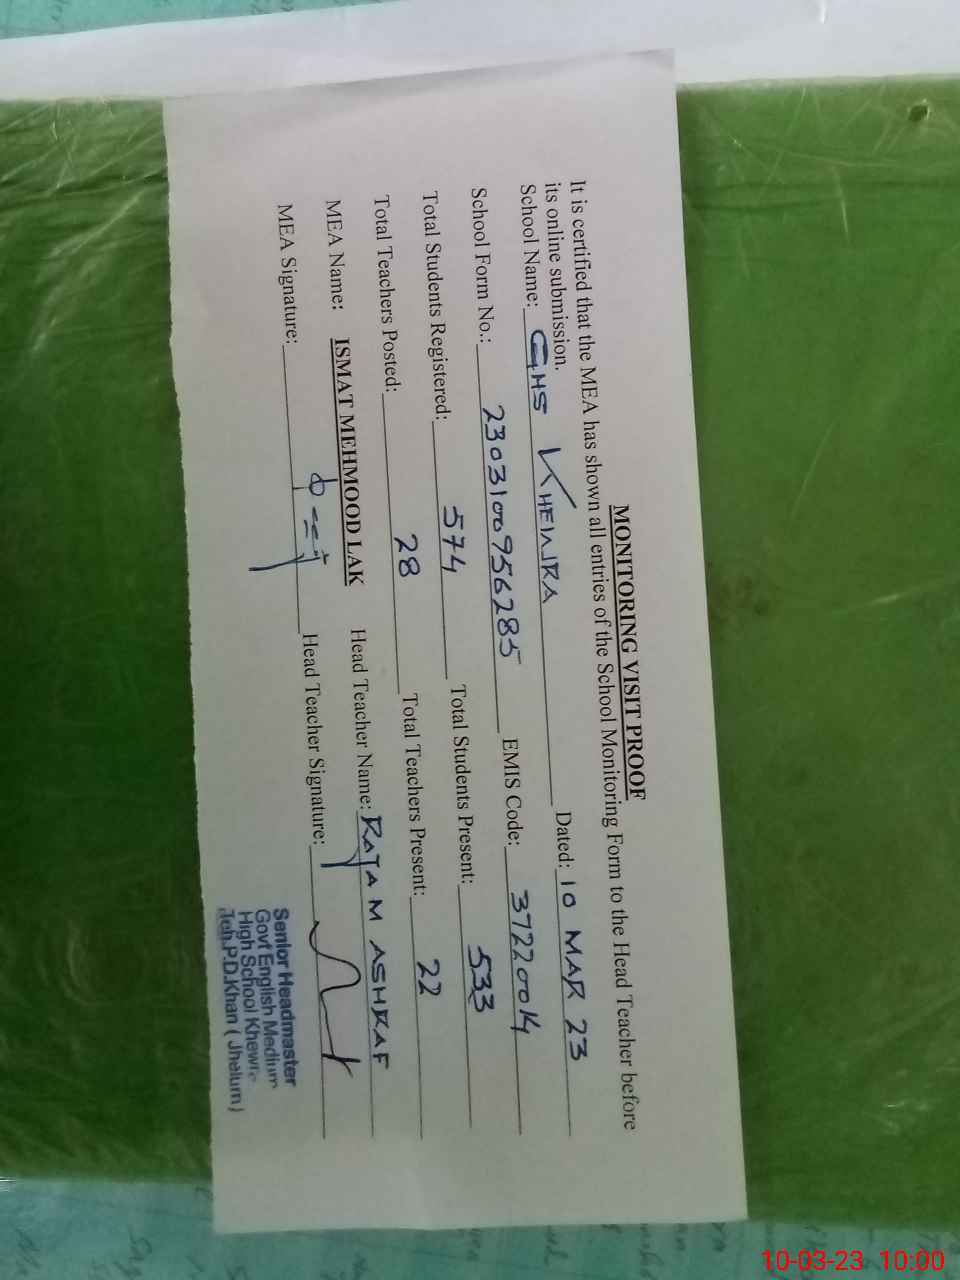 MONITORING VISIT PROOF
It is certified that the MEA has shown all entries of the School Monitoring Form to the Head Teacher before
its online submission.
School Name: GHS KHEWRA Dated: 10 MAR 23
School Form No.: 2303100956285 EMIS Code: 37220014
Total Students Registered: 574 Total Students Present: 533
Total Teachers Posted: 28 Total Teachers Present: 22
MEA Name: ISMAT MEHMOOD LAK Head Teacher Name: RAJA M ASHRAF
MEA Signature: Head Teacher Signature:
Senior Headmaster
Govt English Medium
High School Khewra
Teh.P.D.Khan (Jhelum)
10-03-23 10:00